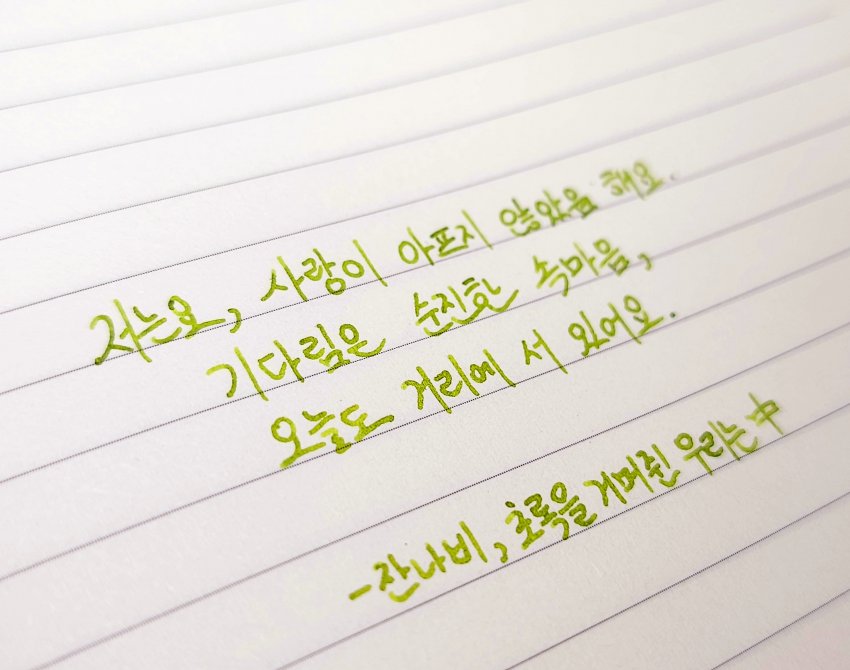 저는요, 사랑이 아프지 않았음 해요.
기다림은 순진한 속마음,
오늘도 거리에 서 있어요.
-잔나비, 초록을거머쥔우리는中